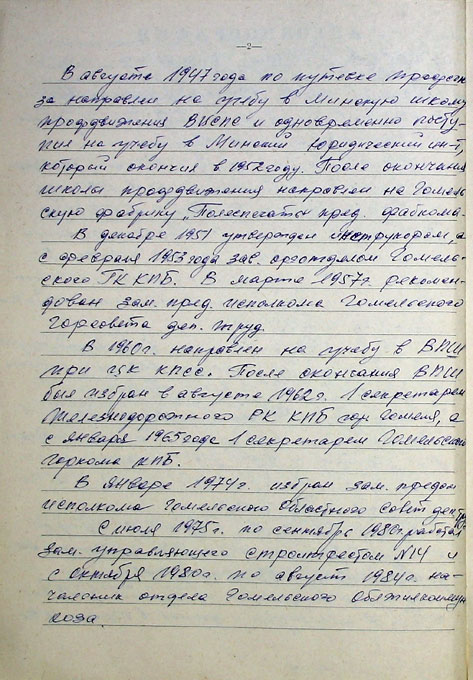 —2—
В августе 1947 года по путевке профсою-
за направлен на учебу в Минскую школу
профдвижения ВЦСПС и одновременно посту-
пил на учебу в Минский юридический ин-т,
который окончил в 1952 году. После окончания
школы профдвижения направлен на Гомель-
скую фабрику „Полеспечать" пред. фабкома.
В декабре 1951 утвержден инструкторам, а
с февраля 1953 года зав. орготделом Гомель-
ского ГК КПБ. В марте 1957г. рекомен-
дован зам. пред. исполкома Гомельского
горсовета деп. труд.
В 1960г. направлен на учебу в ВПШ
при ЦК КПСС. После окончания ВПШ
был избран в августе 1962г. 1 секретарем
Железнодорожного РК КПБ гор. Гомеля, а
с января 1965 года 1 секретарем Гомельского
горкома КПБ.
В январе 1974г. избран зам. предс.
исполкома Гомельского Областного совет. деп.
С июля 1975г. по сентябрь 1980г. работал
зам. управляющего стройтрестом №14 и
с октября 1980г. по август 1984г. на-
чальник отдела Гомельского облжилкомму-
хоза.